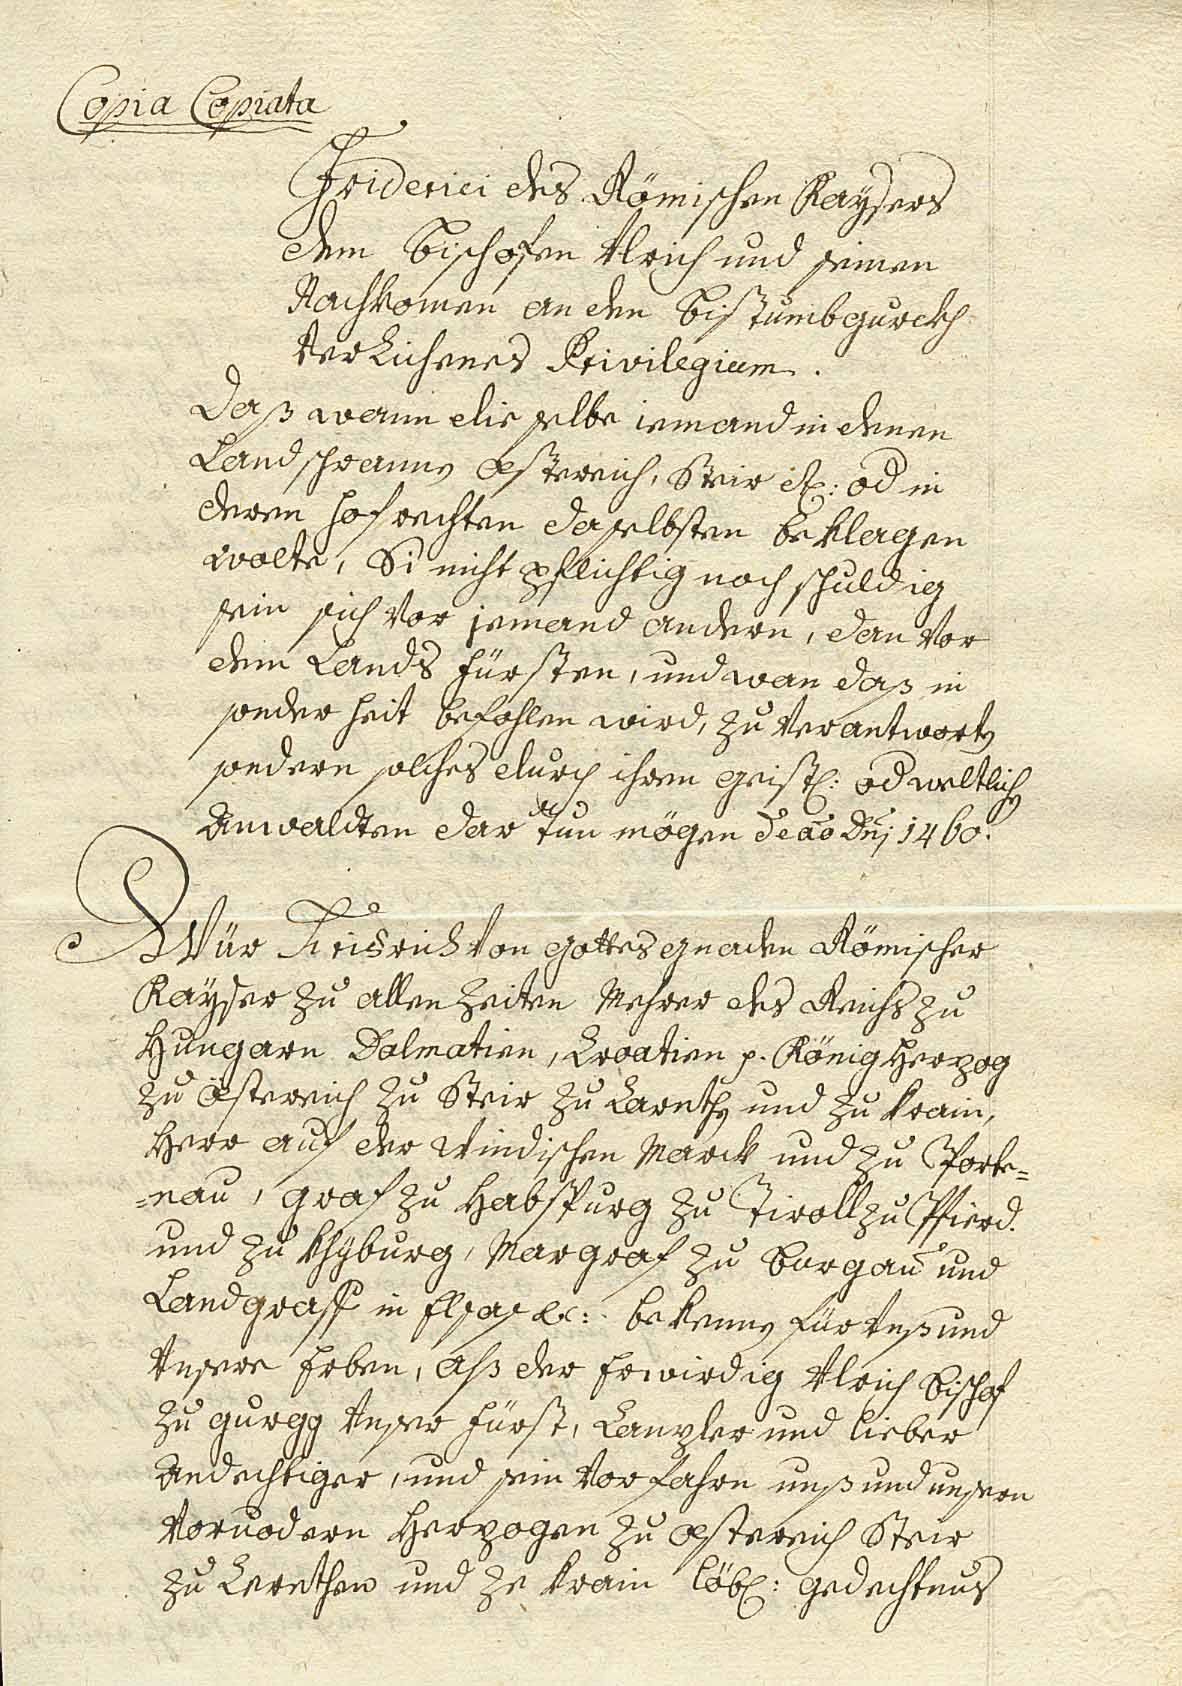 Copia Copiata
Friderici des Römischen Kaysers
dem Bischofen Ulrich und seinen
Nachkomen an den Bistumb gurckh
Verlichenes Privilegium.
Daß wann die selbe iemand in denen
Landschrannen Östereich, Steir etc: od in
deren hofrechten daselbsten beklagen
wolte, Si nicht pflichtig noch schuldig
sein sich vor jemand andern, dan vor
dem Lands fürsten, und wan daß in
sonderheit befohlen wird, zu Verantworten
sondern solches durch ihren geistl: od weltlichen
Anwaldten dar tun mögen de ao Dni 1460.
Wür Fridrich Von gottes gnaden Römischer
Kayser zu allen Zeiten Mehrer des Reichs zu
Hungarn Dalmatien, Croatien p. König Herzog
zu Östereich zu Steir zu Carnthen und zu Krain,
Herr auf der Windischen Marck und zu Porte-
-nau, graf zu Habspurg zu Tiroll zu Pfierd.
und zu Khyburg, Margraf zu Burgau und
Landgraff in Elsas etc: bekennen für Unß und
Unsere Erben, aß der Erwirdig Ulrich Bischof
zu gurgg Unser fürst, Canzler und lieber
Andechtiger, und sein Vorfahrn unß und unsern
Vorvodern Herzogen zu Östereich Steir
zu Cernthen und ze Krain löbl: gedechtnus